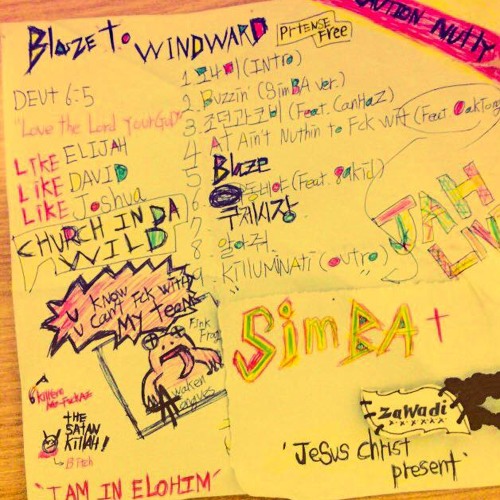 Blaze to WINDWARD
PRTENSE
Free
CAUTION NUTTY
DEUT 6:5
"Love the Lord your GOD"
LIKE ELIJAH
LIKE DAVID
LIKE Joshua
CHURCH IN DA
WILD
1. (Intro)
2. Buzzin' (SimBA ver.)
3. (Feat. CanHaZ)
4. At Ain't Nuthin to Fck wit (Feat.
5 Blaze
6 (Feat.
7 구제시장
8. 알아줘
9. Killuminati (outro)
JAH
LIV
U know
U can't Fck with
My Team
Fink
Frog
Awaken
THE
SATAN
KILLAH!
"I AM IN ELOHIM"
SimBA
Zawadi
'Jesus Christ
present'